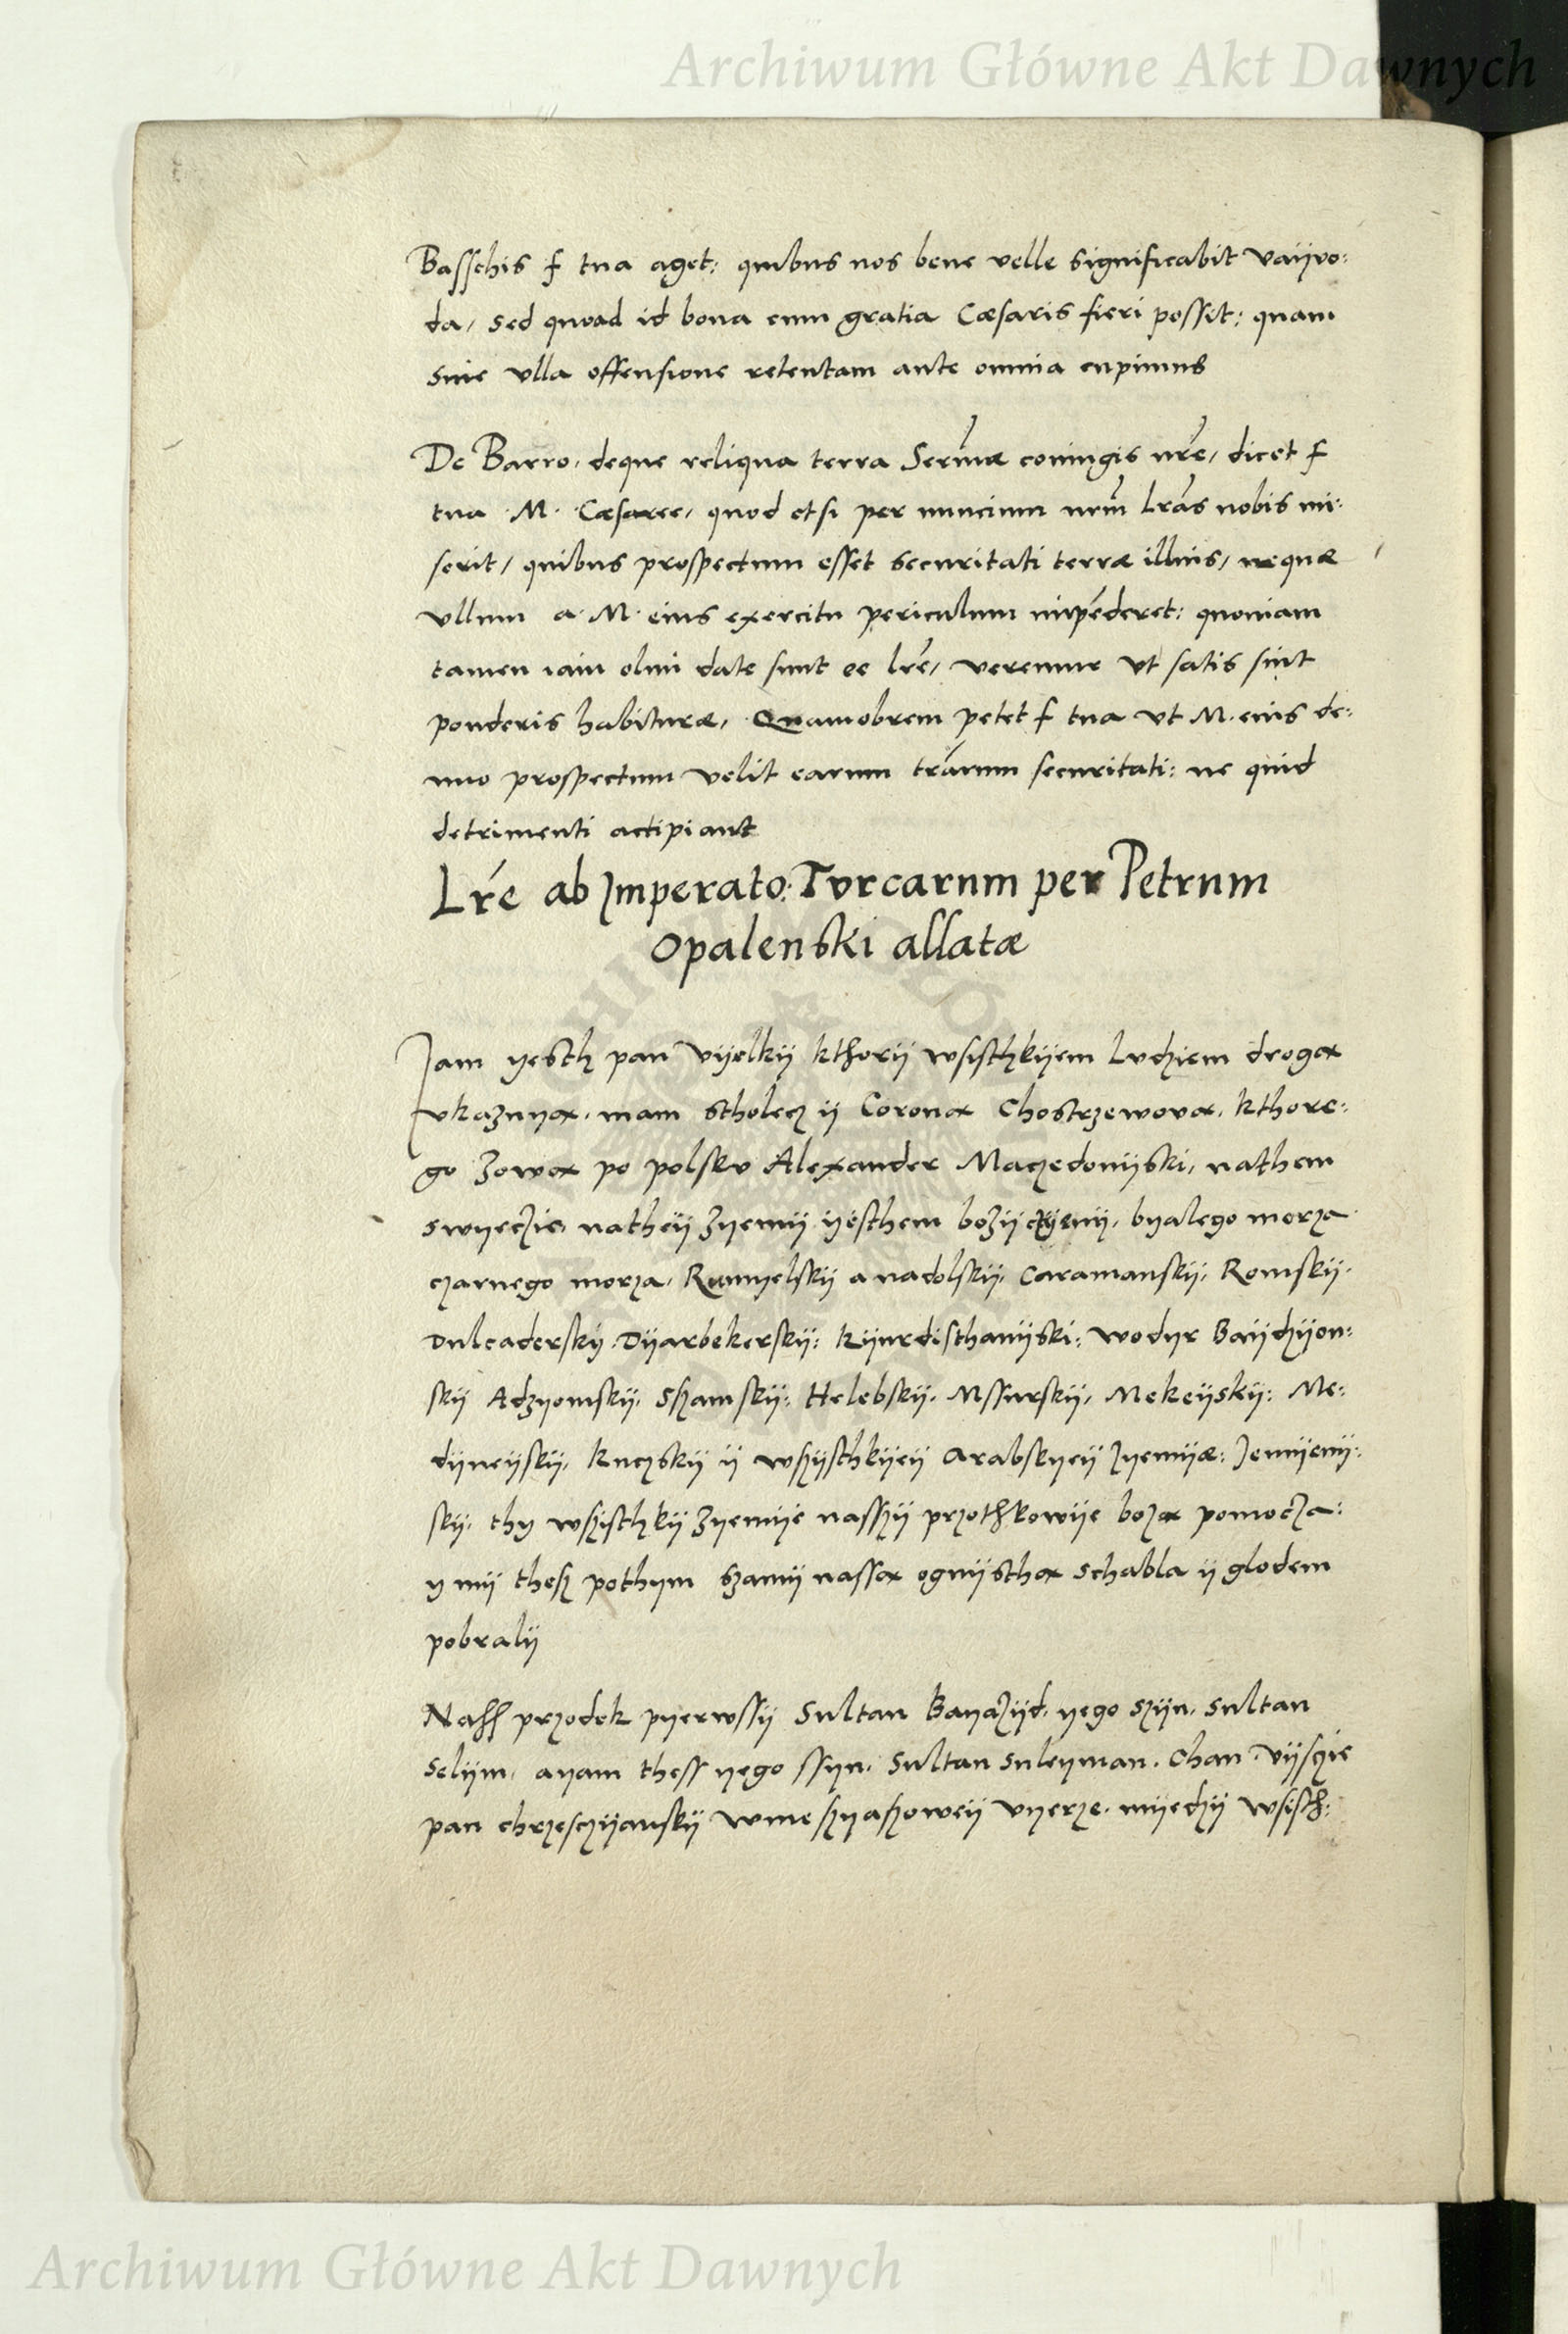 Archiwum Główne Akt Dawnych
Basschis f tua aget: quibus nos bene velle significabit vaijvo:
da, sed quoad id bona cum gratia Cæsaris fieri possit: quam
sine vlla offensione retentam ante omnia cupimus
De Barro, deque reliqua terra Sermæ coniugis nre, dicet f
tua M. Cæsaree, quod etsi per nuncium nrm lras nobis mi:
serit, quibus prospectum esset securitati terræ illius, nequæ
vllum a M. eius exercitu periculum impēderet: quoniam
tamen iam olim date sunt ee lre, veremur vt satis sint
ponderis habituræ, Quamobrem petet f tua vt M. eius de:
nuo prospectum velit earum trarum securitati: ne quid
detrimenti accipiant
Lre ab Imperato: Turcarum per Petrum
Opalenski allatæ
Jam yesth pan vijelkij kthorij wsisthkijem Ludziem droga
vkazuya, mam stholecz ij Corona Chostrzewova, kthore:
go zowa po polsku Alexander Maczedonijski, nathem
swyeczie, natheij zyemij ijesthem bozij, byalego morza
czarnego morza, Rumyelskij anadolskij, Caramanskij, Romskij,
Dulcaderskij, Dijarbekerskij: Kijurdisthanijski: wodyr Baijdzijon:
skij Adzyomskij, Szamskij: Helebskij, Mssurskij, Mekeijskij: Me:
dijneijskij, Kuczskij ij wszijsthkijeij Arabskyeij zyemijæ: Jemijenij:
skij, thy wszisthkij zyemije nasszij przothkowije boza pomocza:
y mij thesz pothym szamij nassa ognijstha schabla ij glodem
pobralij
Nassz przodek pyerwssij Sultan Bayazijd, yego szijn, sultan
Selijm, ayam thess yego ssyn, Sultan Suleyman, Chan, vijszie
pan chrzesczijanskij wmeszyaszoweij vyerze, mijedzij wsisth:
Archiwum Główne Akt Dawnych